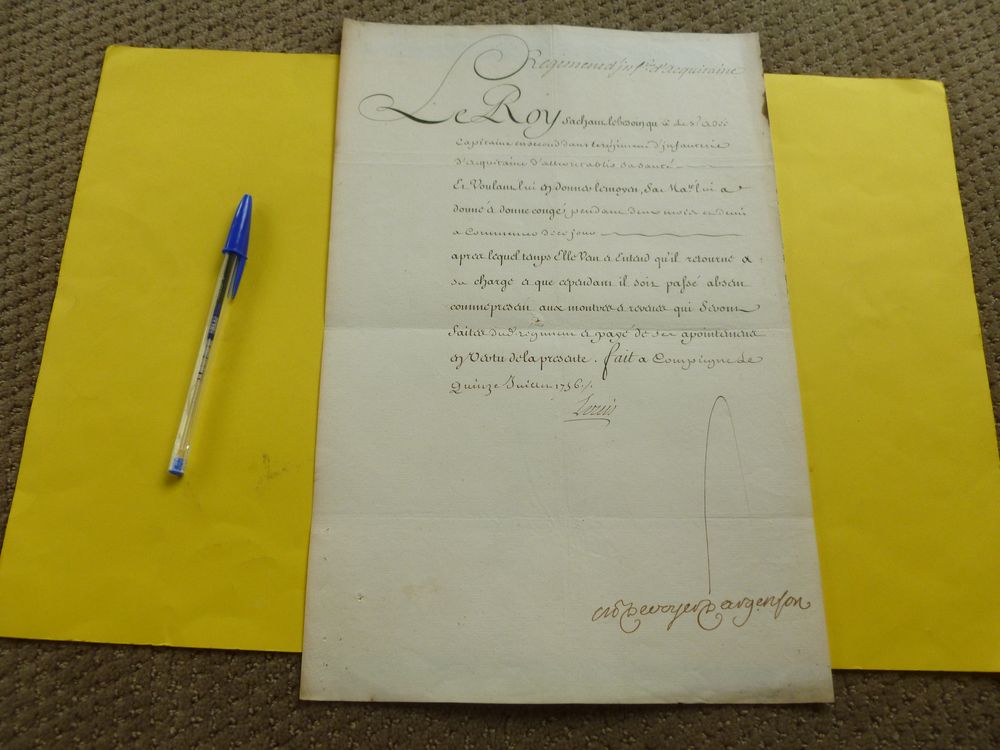 Regiment d'inf.rie d'acquitaine
Le Roy sachant le besoin qu'a le S.r
Capitaine en second dans le regiment d'infanterie
d'acquitaine d'aller retablir sa santé
Et Voulant lui en donner le moyen, Sa Ma.té lui a
donné & donne congé pendant deux mois et demi
a Commencer de ce jour
apres lequel temps Elle Veut & Entend qu'il retourne a
sa charge & que cependant il soit passé absent
comme present aux montres & reveues qui seront
faites dud. regiment & payé de ses apointemens
en Vertu de la presente. fait a Compiegne le
Quinze Juillet 1756./.
Louis
De voyer D'argenson